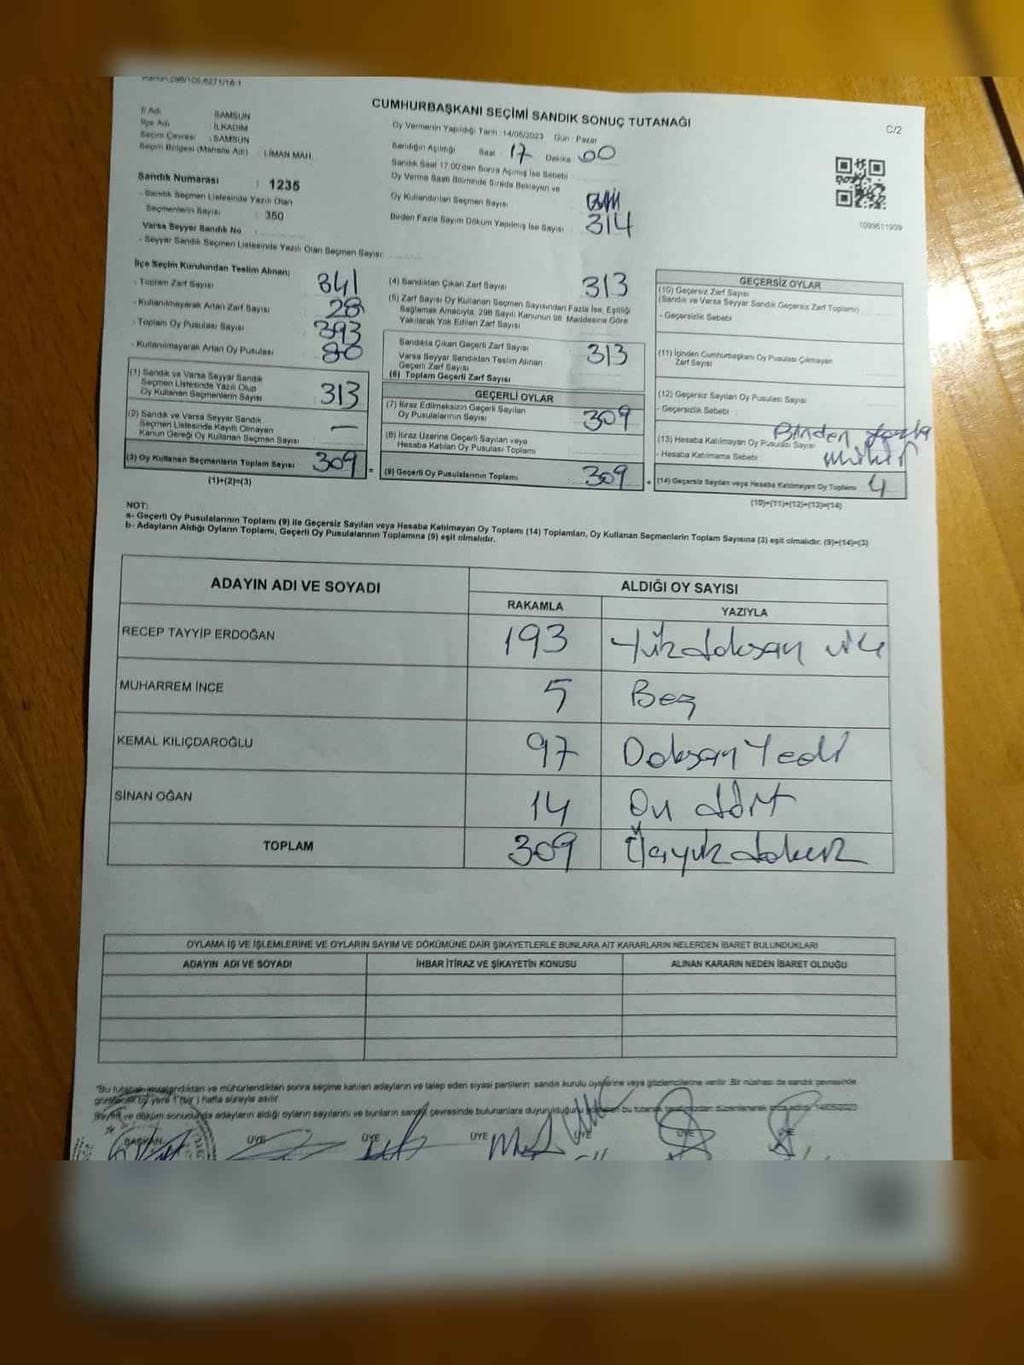 CUMHURBAŞKANI SEÇİMİ SANDIK SONUÇ TUTANAĞI
C/2
İl Adı : SAMSUN
İlçe Adı : İLKADIM
Seçim Çevresi : SAMSUN
Seçim Bölgesi (Mahalle Adı) : LİMAN MAH.
Sandık Numarası : 1235
- Sandık Seçmen Listesinde Yazılı Olan
Seçmenlerin Sayısı : 350
Varsa Seyyar Sandık No
- Seyyar Sandık Seçmen Listesinde Yazılı Olan Seçmen Sayısı:
Oy Vermenin Yapıldığı Tarih : 14/05/2023 Gün : Pazar
Sandığın Açıldığı Saat : 17 Dakika : 00
Sandık Saat 17:00'den Sonra Açılmış İse Sebebi :
Oy Verme Saati Bitiminde Sırada Bekleyen ve
Oy Kullandırılan Seçmen Sayısı
Birden Fazla Sayım Döküm Yapılmış İse Sayısı : 314
1099611909
İlçe Seçim Kurulundan Teslim Alınan;
- Toplam Zarf Sayısı 341
- Kullanılmayarak Artan Zarf Sayısı 28
- Toplam Oy Pusulası Sayısı 393
- Kullanılmayarak Artan Oy Pusulası 80
(1) Sandık ve Varsa Seyyar Sandık
Seçmen Listesinde Yazılı Olup
Oy Kullanan Seçmenlerin Sayısı 313
(2) Sandık ve Varsa Seyyar Sandık
Seçmen Listesinde Kayıtlı Olmayan
Kanun Gereği Oy Kullanan Seçmen Sayısı : —
(3) Oy Kullanan Seçmenlerin Toplam Sayısı 309
(1)+(2)=(3)
(4) Sandıktan Çıkan Zarf Sayısı 313
(5) Zarf Sayısı Oy Kullanan Seçmen Sayısından Fazla İse, Eşitliği
Sağlamak Amacıyla, 298 Sayılı Kanunun 98. Maddesine Göre
Yakılarak Yok Edilen Zarf Sayısı
Sandıkta Çıkan Geçerli Zarf Sayısı 313
Varsa Seyyar Sandıktan Teslim Alınan
Geçerli Zarf Sayısı
(6) Toplam Geçerli Zarf Sayısı
GEÇERLİ OYLAR
(7) İtiraz Edilmeksizin Geçerli Sayılan
Oy Pusulalarının Sayısı 309
(8) İtiraz Üzerine Geçerli Sayılan veya
Hesaba Katılan Oy Pusulası Toplamı
(9) Geçerli Oy Pusulalarının Toplamı 309
GEÇERSİZ OYLAR
(10) Geçersiz Zarf Sayısı
(Sandık ve Varsa Seyyar Sandık Geçersiz Zarf Toplamı)
- Geçersizlik Sebebi :
(11) İçinden Cumhurbaşkanı Oy Pusulası Çıkmayan
Zarf Sayısı
(12) Geçersiz Sayılan Oy Pusulası Sayısı
- Geçersizlik Sebebi :
Birden fazla
(13) Hesaba Katılmayan Oy Pusulası Sayısı
- Hesaba Katılmama Sebebi : mühür
(14) Geçersiz Sayılan veya Hesaba Katılmayan Oy Toplamı 4
(10)+(11)+(12)+(13)=(14)
NOT:
a- Geçerli Oy Pusulalarının Toplamı (9) ile Geçersiz Sayılan veya Hesaba Katılmayan Oy Toplamı (14) Toplamları, Oy Kullanan Seçmenlerin Toplam Sayısına (3) eşit olmalıdır. (9)+(14)=(3)
b- Adayların Aldığı Oyların Toplamı, Geçerli Oy Pusulalarının Toplamına (9) eşit olmalıdır.
ADAYIN ADI VE SOYADI ALDIĞI OY SAYISI
RAKAMLA YAZIYLA
RECEP TAYYİP ERDOĞAN 193 Yüzdoksan üç
MUHARREM İNCE 5 Beş
KEMAL KILIÇDAROĞLU 97 Doksan Yedi
SİNAN OĞAN 14 On dört
TOPLAM 309 Üçyüz dokuz
OYLAMA İŞ VE İŞLEMLERİNE VE OYLARIN SAYIM VE DÖKÜMÜNE DAİR ŞİKAYETLERLE BUNLARA AİT KARARLARIN NELERDEN İBARET BULUNDUKLARI
ADAYIN ADI VE SOYADI İHBAR İTİRAZ VE ŞİKAYETİN KONUSU ALINAN KARARIN NEDEN İBARET OLDUĞU
"Bu tutanak imzalandıktan ve mühürlendikten sonra seçime katılan adayların ve talep eden siyasi partilerin sandık kurulu üyelerine veya gözlemcilerine verilir. Bir nüshası da sandık çevresinde
görülecek bir yere 1 (bir) hafta süreyle asılır.
Sayım ve döküm sonucunda adayların aldığı oyların sayılarını ve bunların sandık çevresinde bulunanlara duyurulduğunu
BAŞKAN ÜYE ÜYE ÜYE ÜYE ÜYE ÜYE